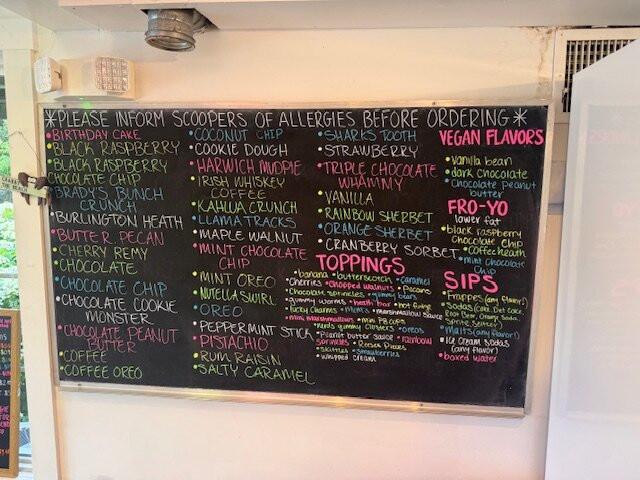 *PLEASE INFORM SCOOPERS OF ALLERGIES BEFORE ORDERING*
•BIRTHDAY CAKE
•BLACK RASPBERRY
•BLACK RASPBERRY
CHOCOLATE CHIP
•BRADY'S BUNCH
CRUNCH
•BURLINGTON HEATH
•BUTTER PECAN
•CHERRY REMY
•CHOCOLATE
•CHOCOLATE CHIP
•CHOCOLATE COOKIE
MONSTER
•CHOCOLATE PEANUT
BUTTER
•COFFEE
•COFFEE OREO
•COCONUT CHIP
•COOKIE DOUGH
•HARWICH MUDPIE
•IRISH WHISKEY
COFFEE
•KAHLUA CRUNCH
•LLAMA TRACKS
•MAPLE WALNUT
•MINT CHOCOLATE
CHIP
•MINT OREO
•NUTELLA SWIRL
•OREO
•PEPPERMINT STICK
•PISTACHIO
•RUM RAISIN
•SALTY CARAMEL
•SHARKS TOOTH
•STRAWBERRY
•TRIPLE CHOCOLATE
WHAMMY
•VANILLA
•RAINBOW SHERBET
•ORANGE SHERBET
•CRANBERRY SORBET
TOPPINGS
•banana •butterscotch •caramel
•Cherries •Chopped walnuts •Pecans
•Chocolate sprinkles •gummy bears
•gummy worms •heath bar •hot fudge
•lucky charms •M&M's •marshmallow sauce
•mini marshmallows •mini PB cups
•Nerds gummy clusters •oreos
•Peanut butter sauce •rainbow
sprinkles •Reeses Pieces
•Skittles •Strawberries
•whipped cream
VEGAN FLAVORS
•Vanilla bean
•dark chocolate
•Chocolate peanut
butter
FRO-YO
lower fat
•black raspberry
Chocolate chip
•Coffee heath
•mint Chocolate
Chip
SIPS
•Frappes (any flavor)
•Sodas (Coke, Diet Coke
Root Beer, Orange Soda
Sprite, Seltzer)
•Malts (any flavor)
•Ice Cream Sodas
(any flavor)
•boxed water